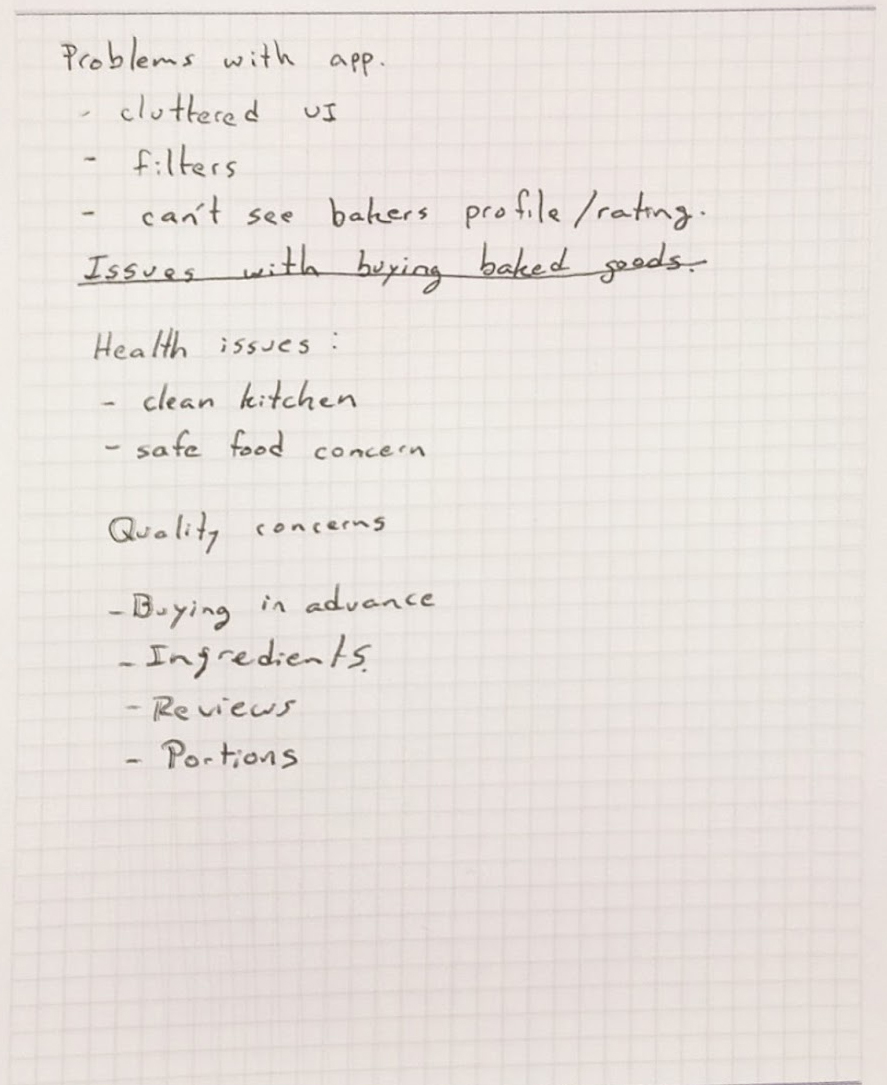 Problems with app.
- cluttered UI
- filters
- can't see bakers profile/rating.
Issues with buying baked goods.
Health issues :
- clean kitchen
- safe food concern
Quality concerns
- Buying in advance
- Ingredients.
- Reviews
- Portions